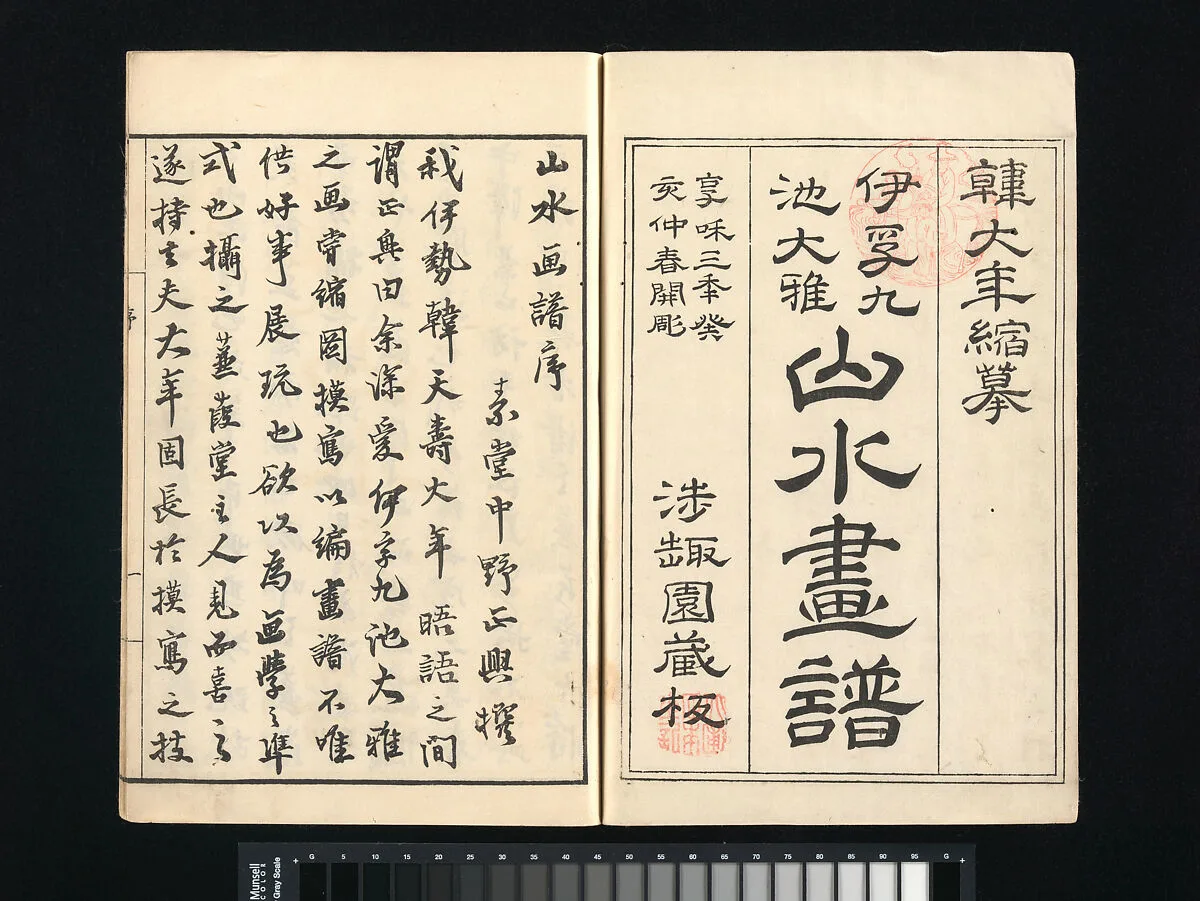 韓大年縮摹
伊孚九
池大雅
山水畫譜
享和三季癸
亥仲春開彫
渉趣園蔵板
山水画譜序
素堂中野正興撰
我伊勢韓天壽大年 晤語之間
謂正興曰余深愛伊孚九池大雅
之画嘗縮圖摸寫以編畫譜不唯
供好事展玩也欲以為画學之準
式也攝之蒹葭堂主人見而喜之
遂持去夫大年固長於摸寫之技
序
一
Munsell
COLOR
Gray Scale
G 5 10 15 20 25 30 35 40 45 50 55 60 65 70 75 80 85 90 95 G